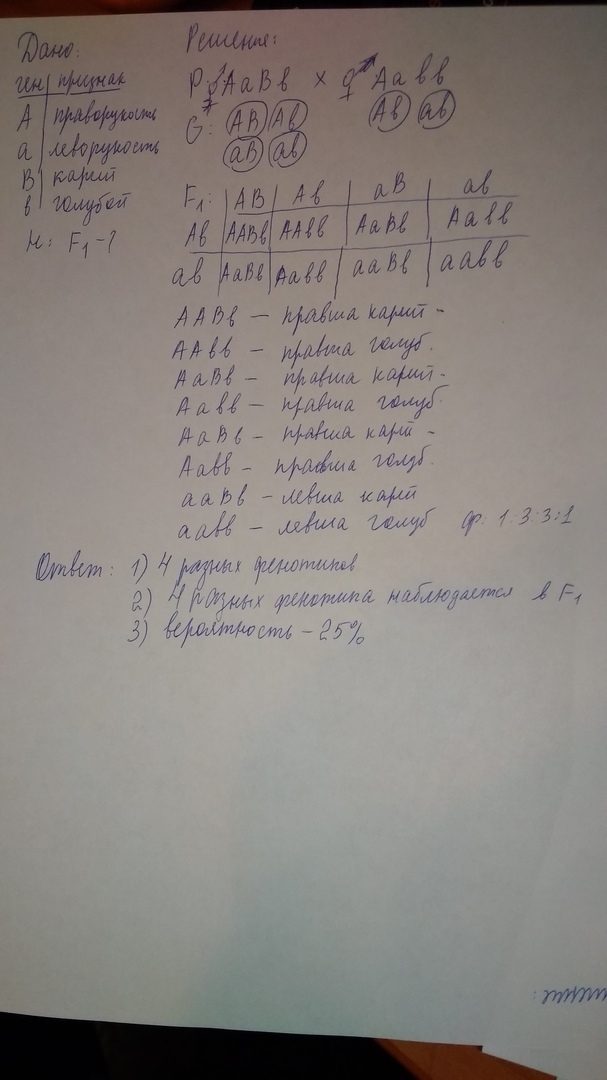 Дано:
ген признак
А праворукость
а леворукость
В карий
в голубой
Н: F₁ - ?
Решение:
Р: ♂ АаВв × ♀ Аавв
G: АВ Ав Ав ав
аВ ав
F₁: АВ Ав аВ ав
Ав ААВв ААвв АаВв Аавв
ав АаВв Аавв ааВв аавв
ААВв – правша карий -
ААвв – правша голуб.
АаВв – правша карий -
Аавв – правша голуб.
АаВв – правша карий -
Аавв – правша голуб.
ааВв – левша карий
аавв – левша голуб ф: 1:3:3:1
Ответ: 1) 4 разных фенотипов
2) 4 разных фенотипа наблюдается в F₁
3) вероятность – 25%